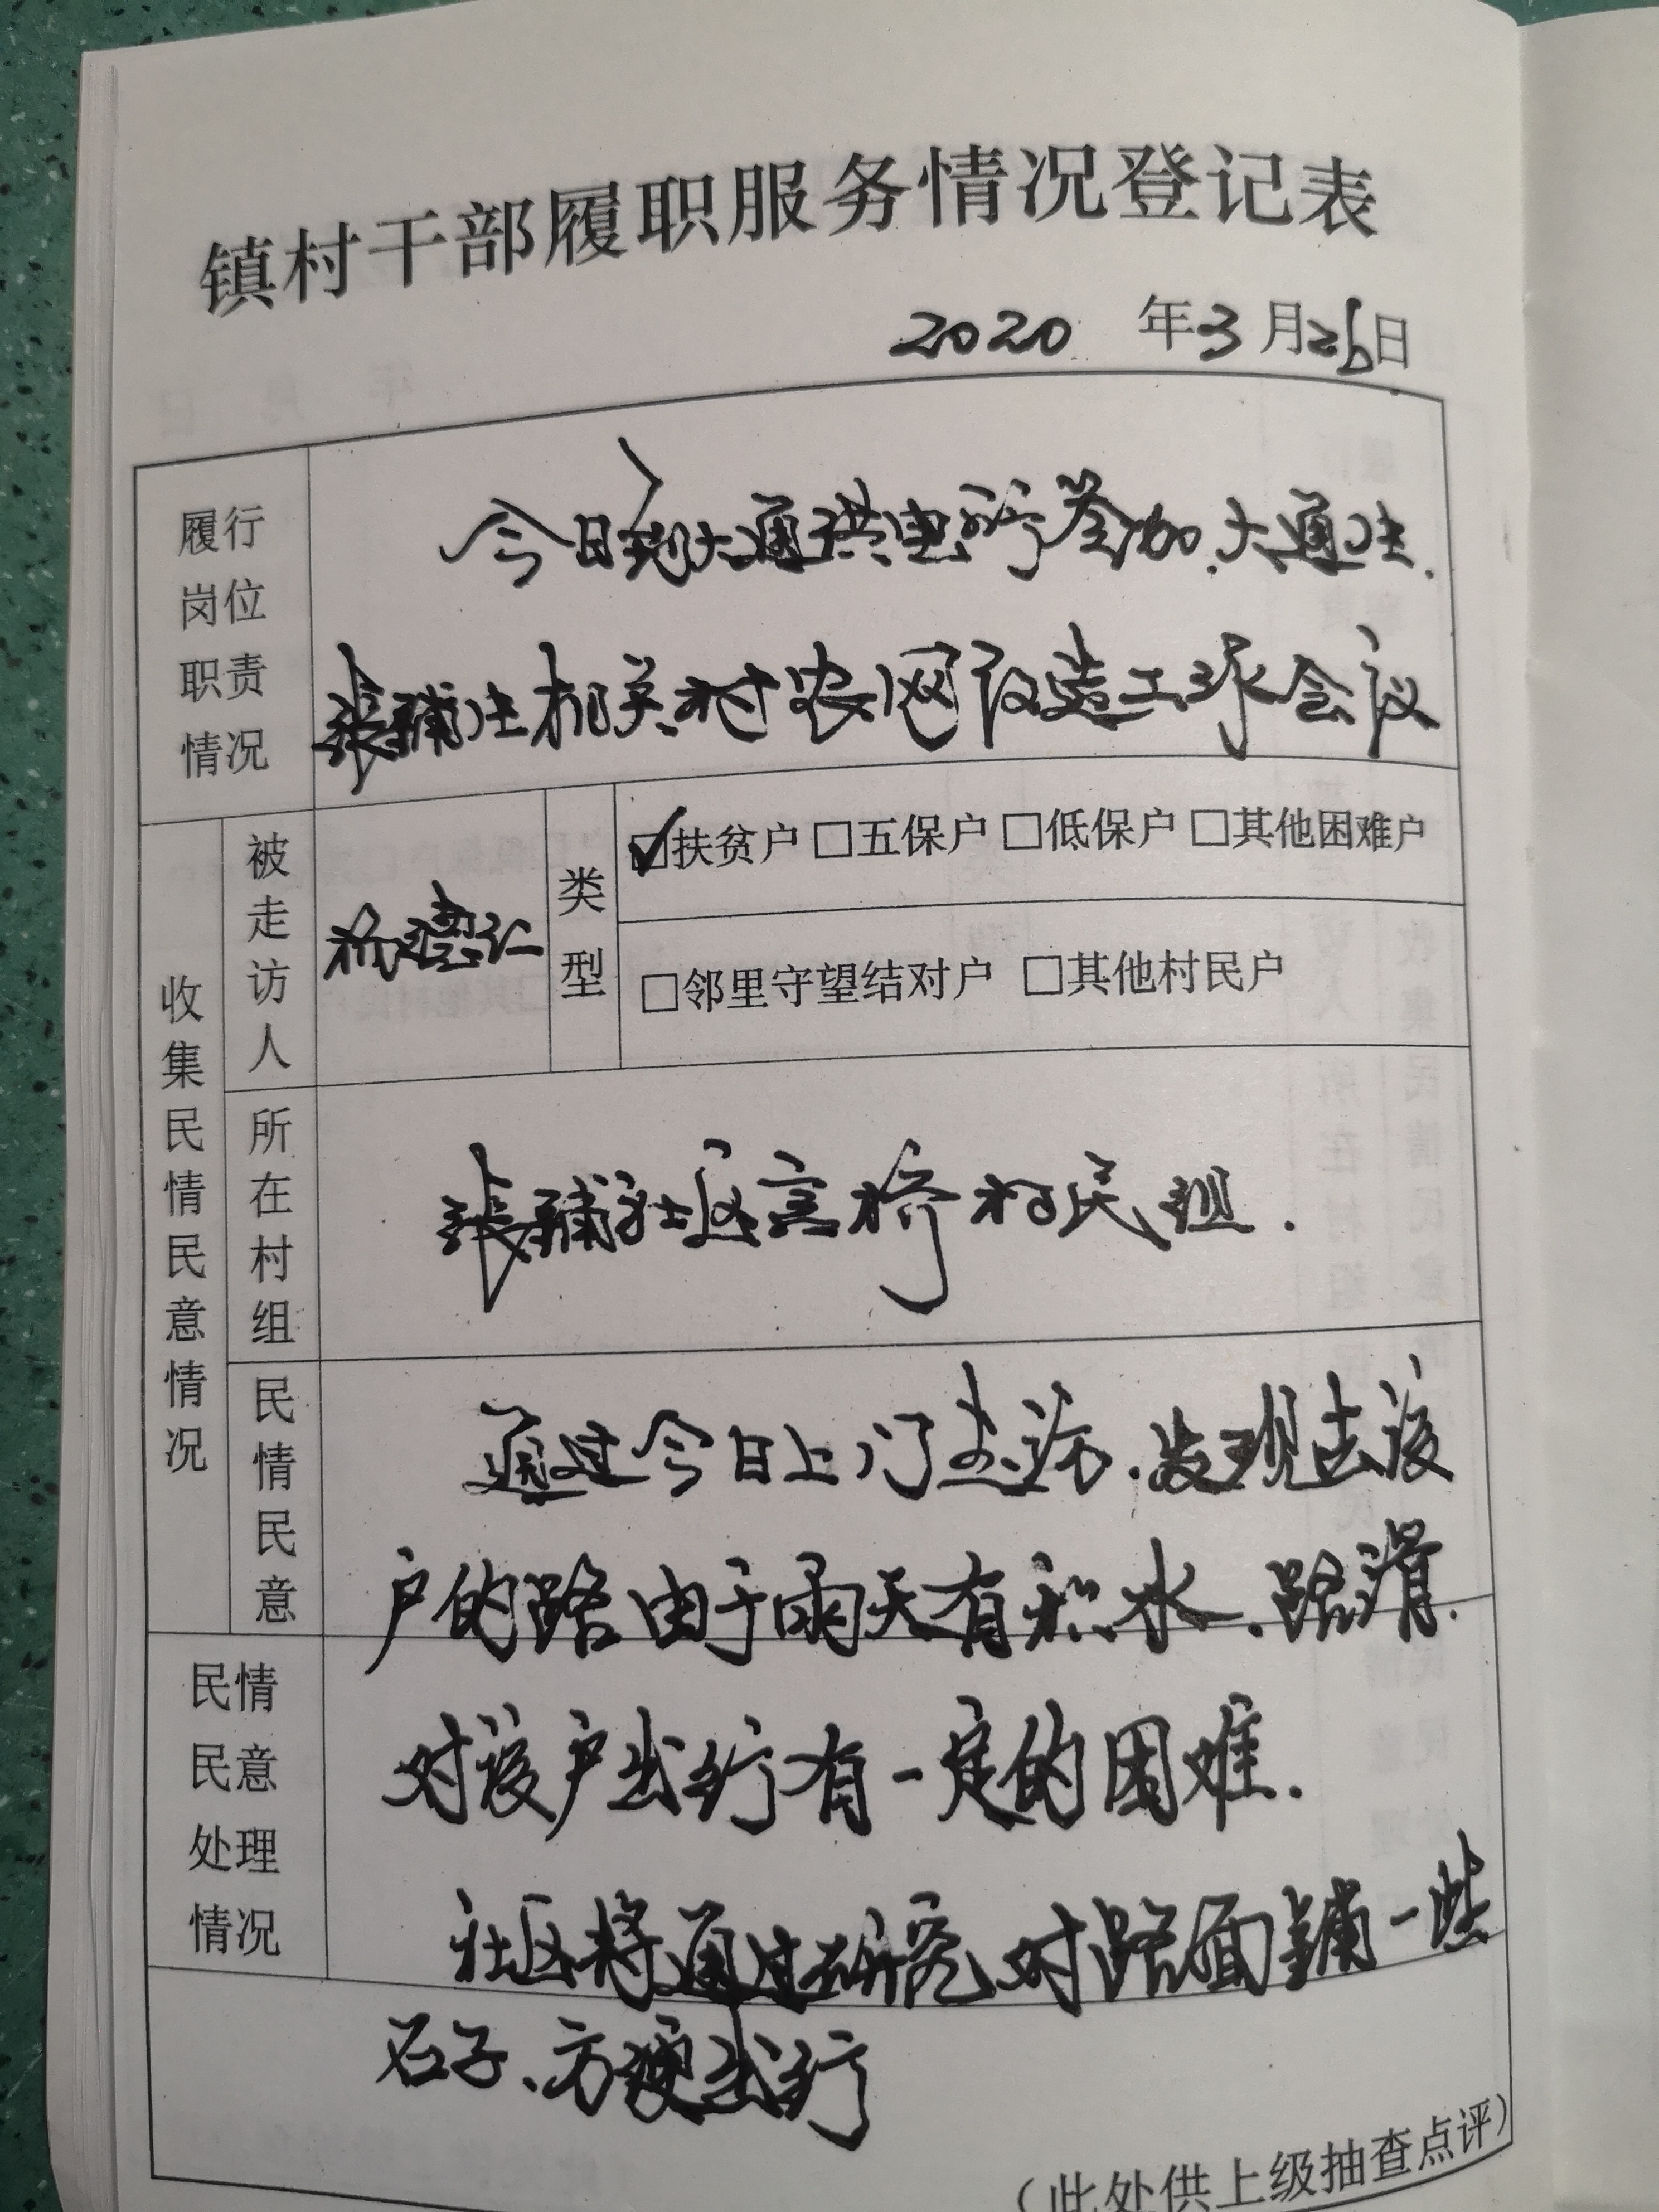 镇村干部履职服务情况登记表
2020 年 3 月 26 日
履行岗位职责情况
今日到大通供电所参加.大通片.
张辅片相关村农网改造工程会议
收集民情民意情况
被走访人
杨德仁
类型
☑扶贫户 □五保户 □低保户 □其他困难户
□邻里守望结对户 □其他村民户
所在村组
张辅社区高桥村民组.
民情民意
通过今日上门走访.发现去该
户的路由于雨天有积水.路滑.
对该户出行有一定的困难.
民情民意处理情况
社区将通过研究对路面铺一些
石子、方便出行
(此处供上级抽查点评)